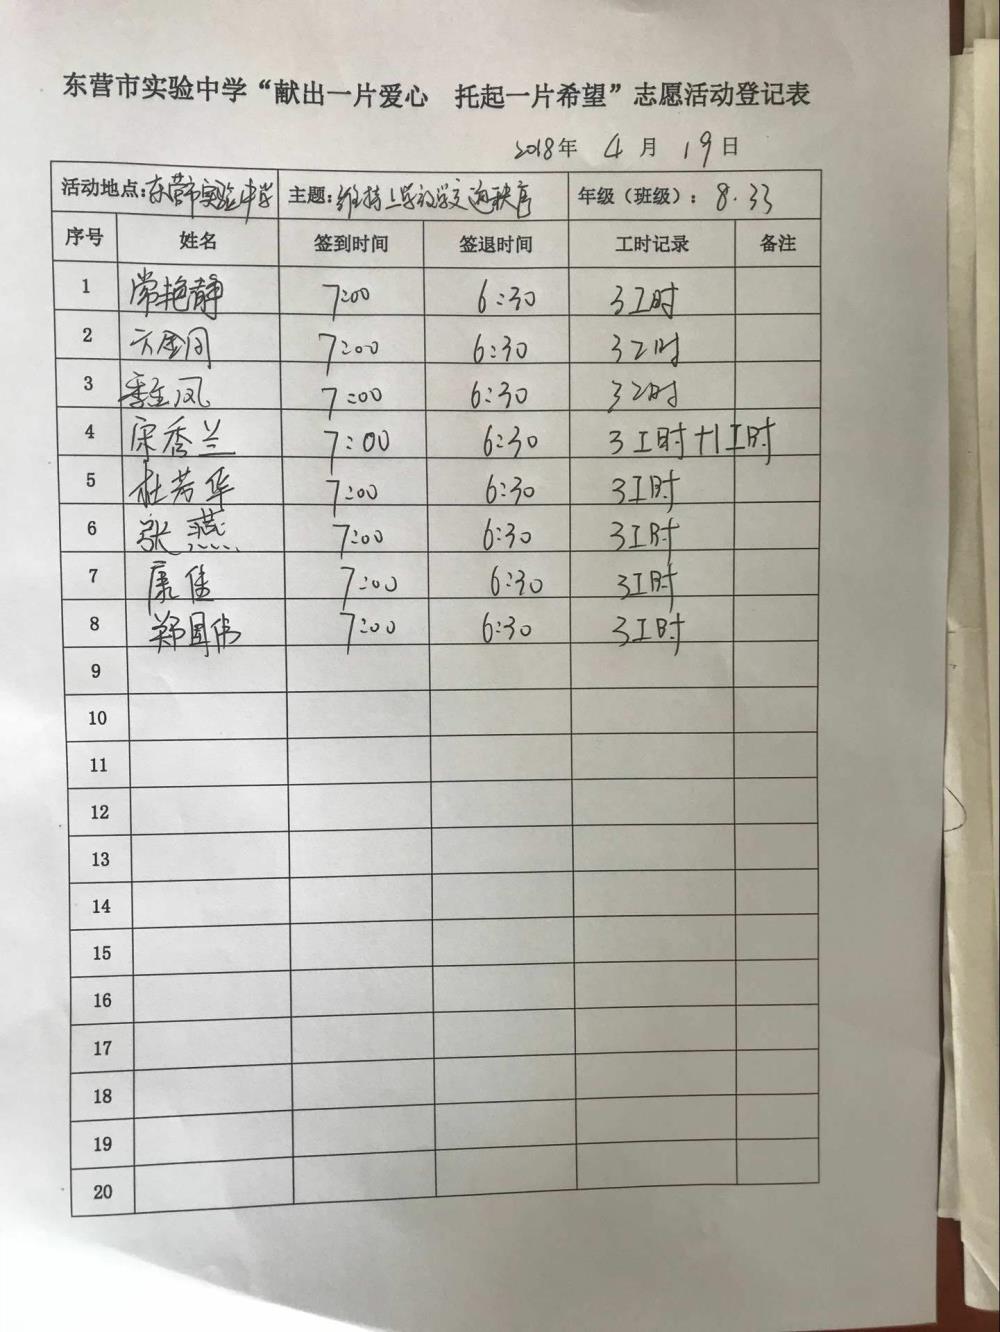 东营市实验中学“献出一片爱心 托起一片希望”志愿活动登记表
2018年 4 月 19 日
活动地点:东营市实验中学 主题:维持上学放学交通秩序 年级（班级）: 8.33
序号 姓名 签到时间 签退时间 工时记录 备注
1 常艳静 7:00 6:30 3工时
2 7:00 6:30 3工时
3 季金凤 7:00 6:30 3工时
4 宋秀兰 7:00 6:30 3工时+1工时
5 杜芳华 7:00 6:30 3工时
6 张燕 7:00 6:30 3工时
7 康佳 7:00 6:30 3工时
8 郑国伟 7:00 6:30 3工时
9
10
11
12
13
14
15
16
17
18
19
20